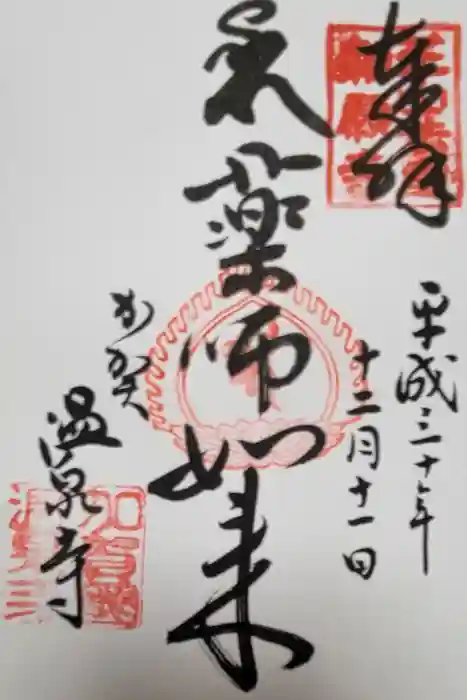 奉拝
平成三十年
十二月十一日
薬師如来
加賀
温泉寺